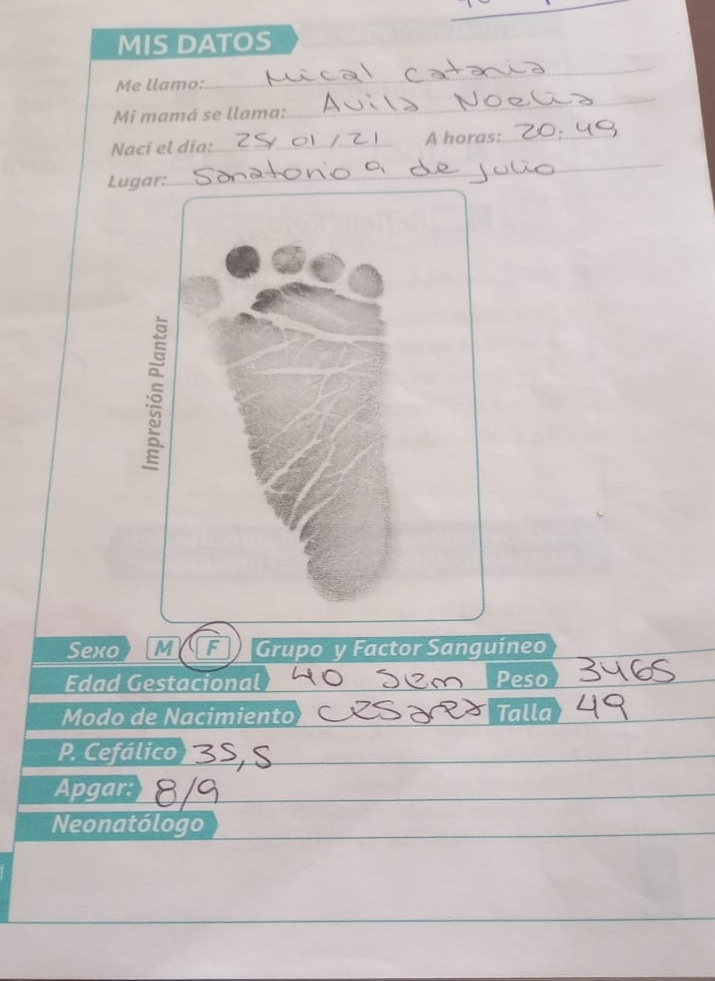 MIS DATOS
Me llamo: Mical Catania
Mi mamá se llama: Avila Noelia
Nací el día: 25/01/21 A horas: 20:49
Lugar: Sanatorio 9 de Julio
Impresión Plantar
Sexo M F Grupo y Factor Sanguíneo
Edad Gestacional 40 Sem Peso 3465
Modo de Nacimiento Cesarea Talla 49
P. Cefálico 35,5
Apgar: 8/9
Neonatólogo